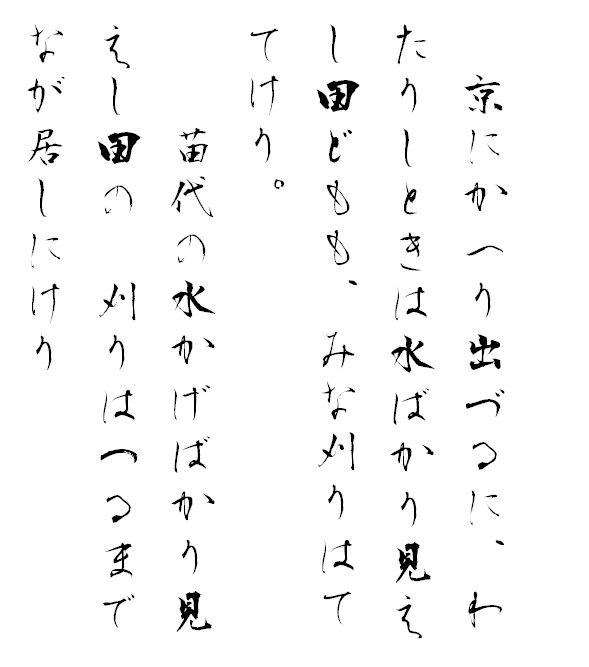 京にかへり出づるに、わ
たりしときは水ばかり見え
し田どもも、みな刈りはて
てけり。
苗代の水かげばかり見
えし田の 刈りはつるまで
なが居しにけり